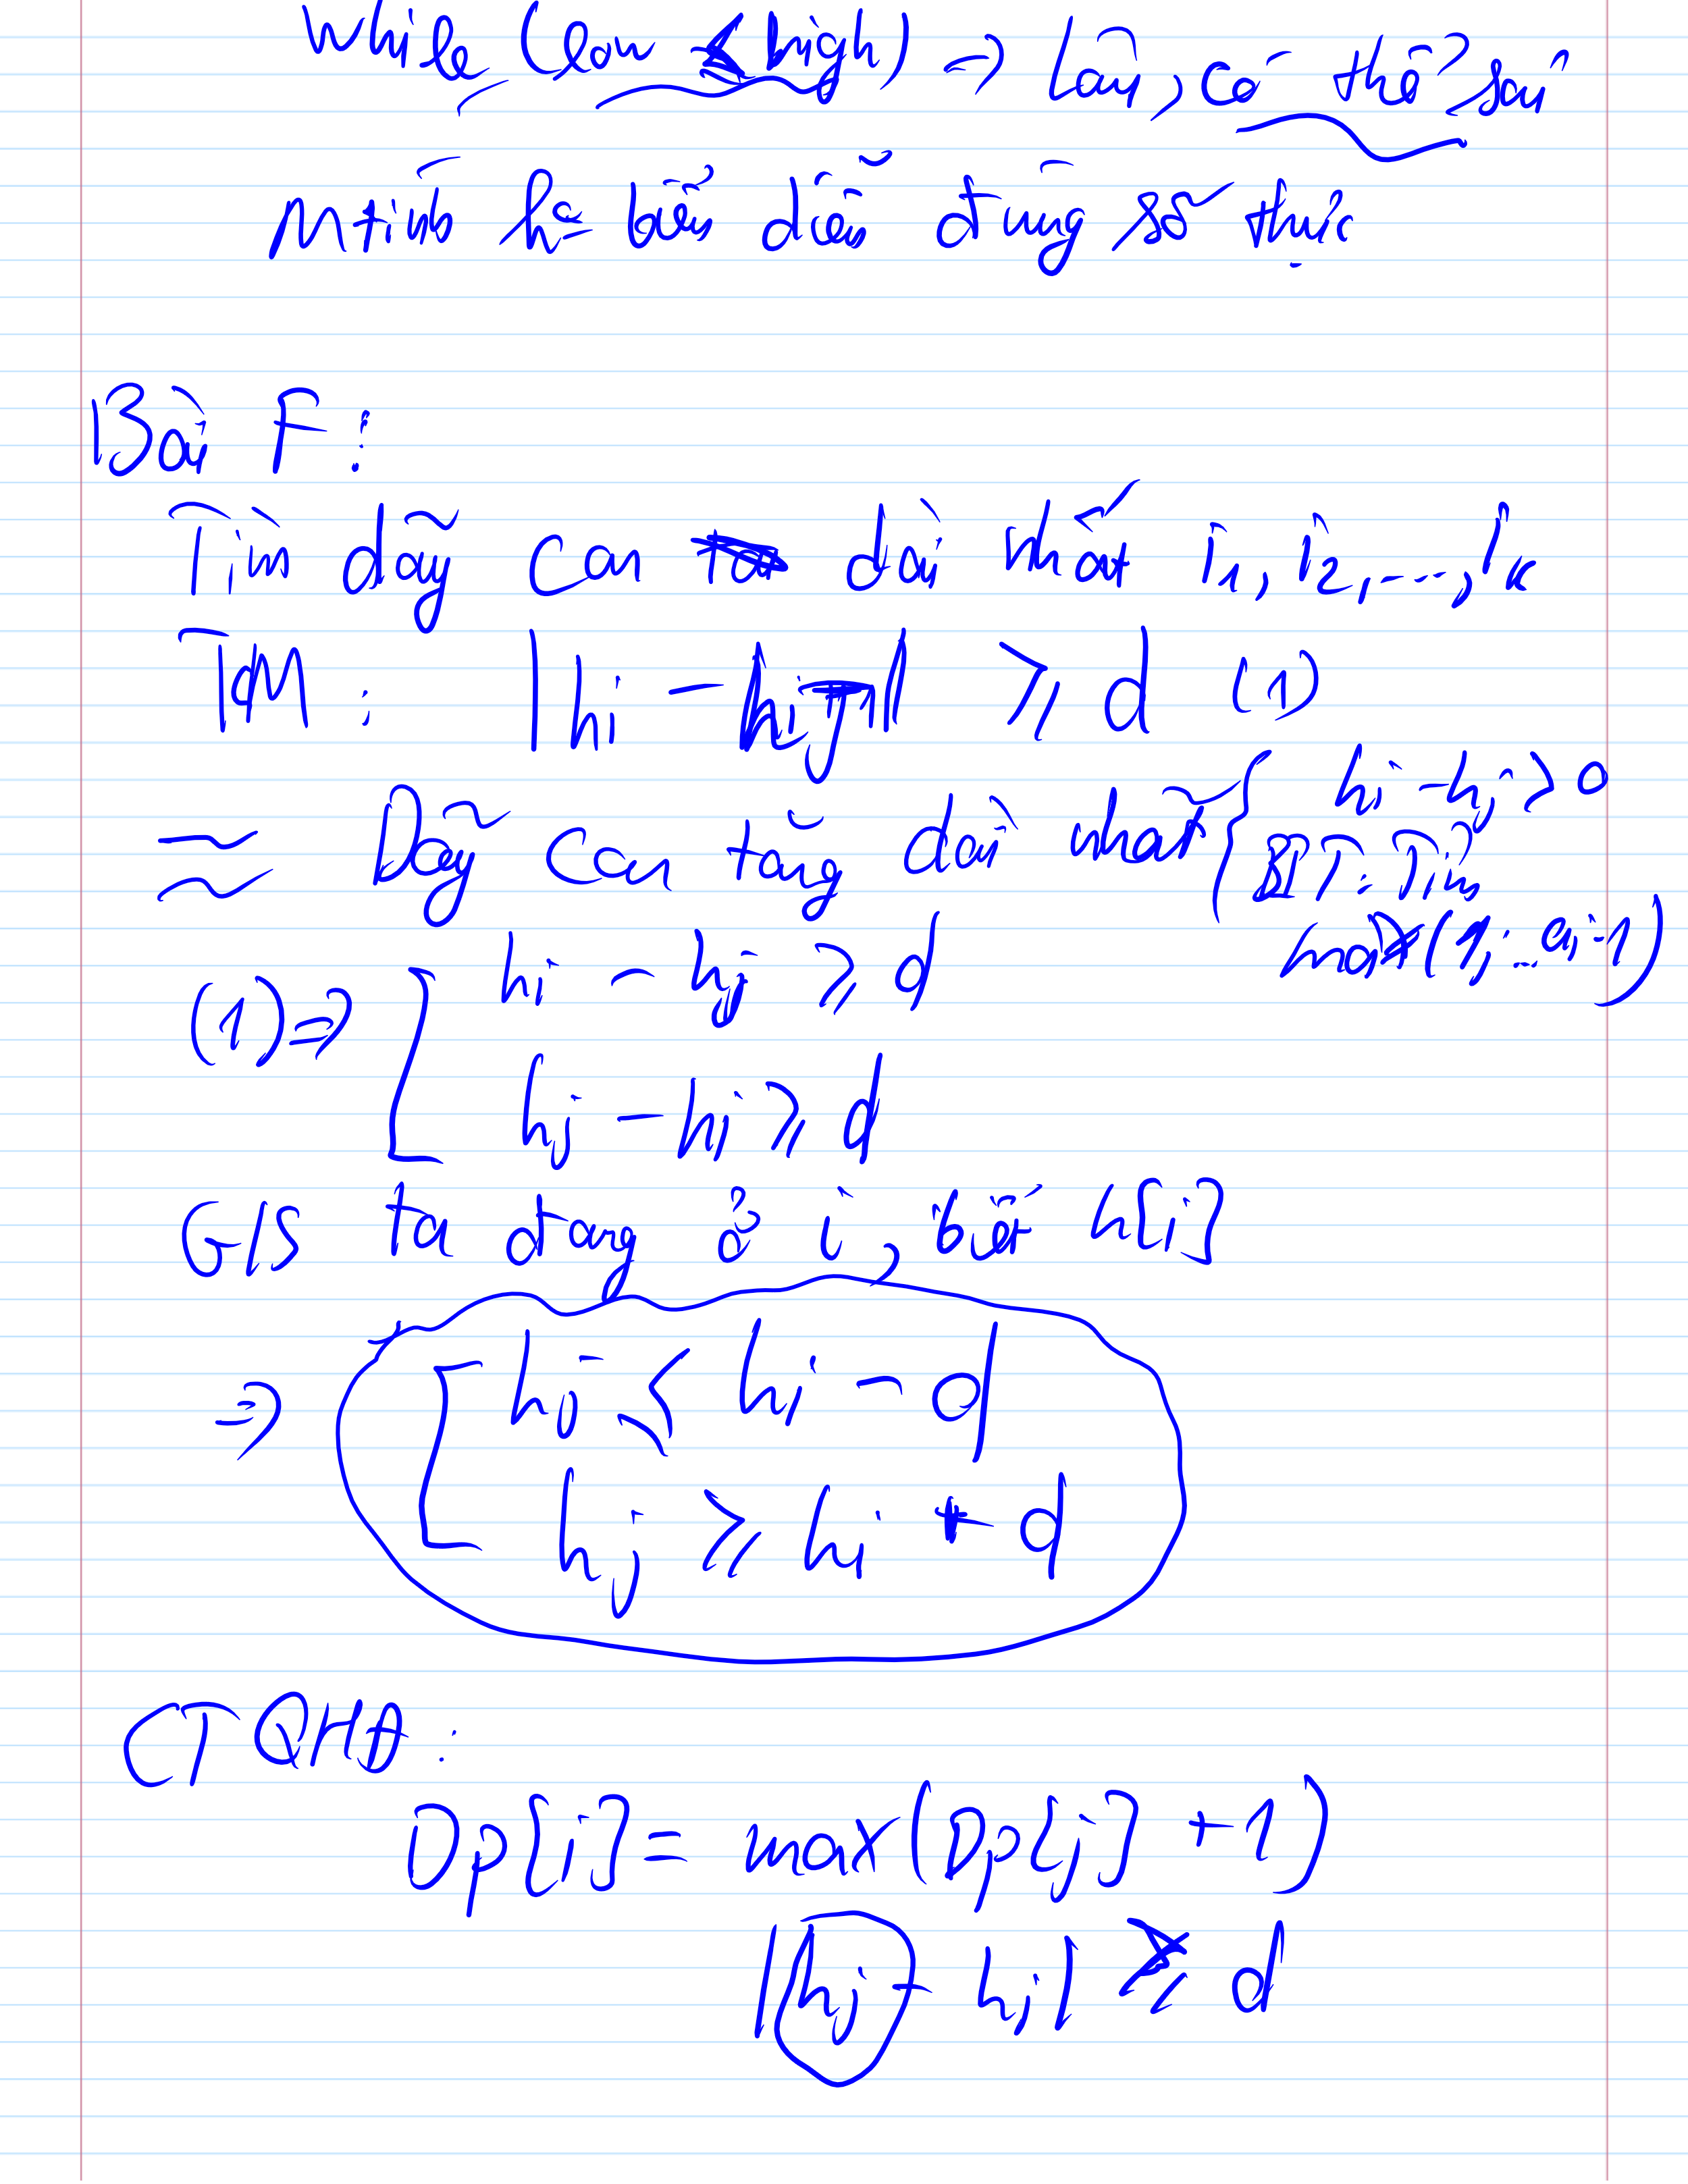 While (low < high) → lâu, có thể sai
m tính k biểu diễn đúng số thực
Bài F:
Tìm dãy con dài nhất i1, i2, ..., ik
TM: |hi - hj| ≥ d (1)
≈ Dãy con tăng dài nhất { hi - hj > 0
BIT: Tìm
max(1; ai-1)
(1) => [ hi - hj ≥ d
hj - hi ≥ d
G/S ta đang ở i, biết h[i]
=> [ hj ≤ hi - d
hj ≥ hi + d
CT QHĐ:
Dp[i] = max(Dp[j] + 1)
|hj - hi| ≥ d